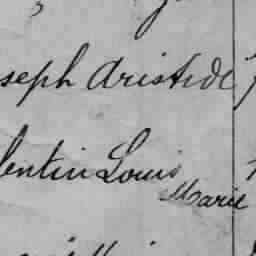 seph Aristide
lentin Louis
Marie